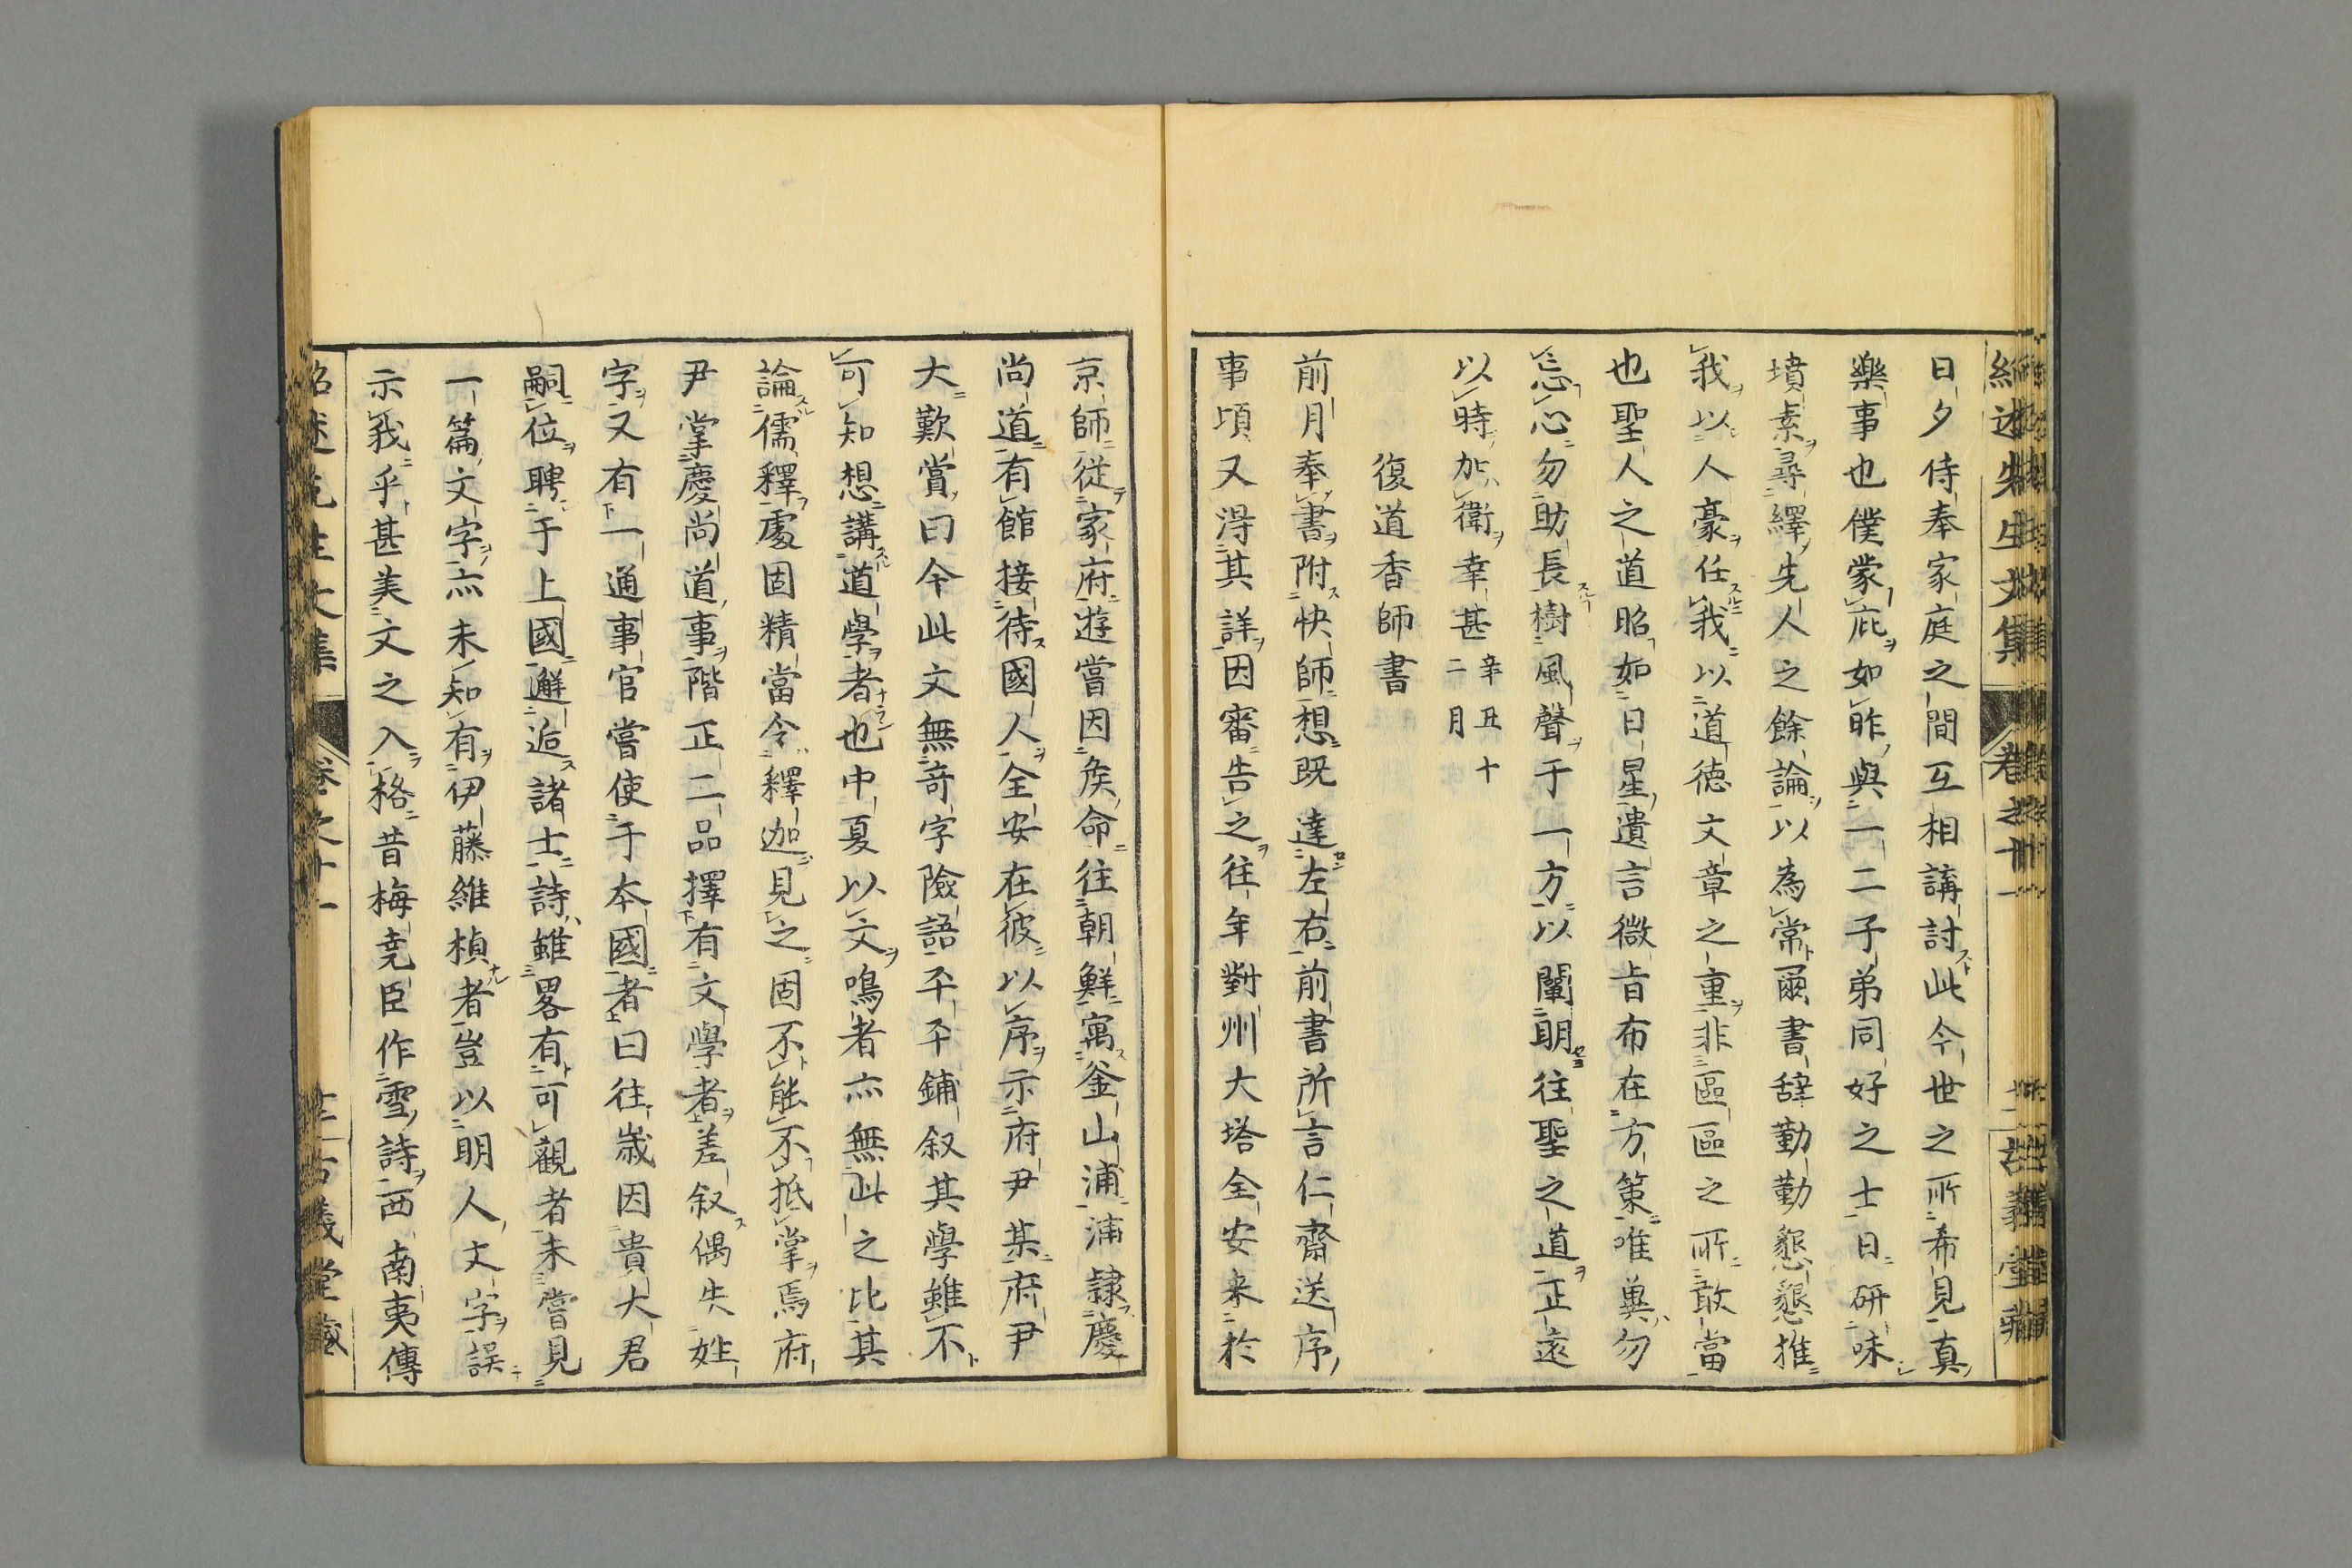 日夕侍奉家庭之間互相講討此今世之所希見真
樂事也僕蒙庇如昨與一二子弟同好之士日研味
墳素尋繹先人之餘論以為常爾書辞勤勤懇懇推
我以人豪任我以道徳文章之重非區區之所敢當
也聖人之道昭如日星遺言微旨布在方策唯兾勿
忘心勿助長樹風聲于一方以闡明往聖之道正遠
以時加衛幸甚 辛丑十二月
復道香師書
前月奉書附快師想既達左右前書所言仁齋送序
事頃又淂其詳因審告之往年對州大塔全安来於
京師従家府遊嘗因矦命往朝鮮寓釜山浦浦隷慶
尚道有館接待國人全安在彼以序示府尹某府尹
大歎賞曰今此文無竒字險語平平鋪叙其學雖不
可知想講道學者也中夏以文鳴者亦無此之比其
論儒釋處固精當令釋迦見之固不能不抵掌焉府
尹掌慶尚道事階正二品擇有文學者差叙偶失姓
字又有一通事官嘗使于本國者曰往歳因貴大君
嗣位聘于上國邂逅諸士詩雖畧有可觀者未嘗見
一篇文字亦未知有伊藤維楨者豈以明人文字誤
示我乎甚美文之入格昔梅堯臣作雪詩西南夷傳
紹述先生文集 卷之十一 古義堂藏